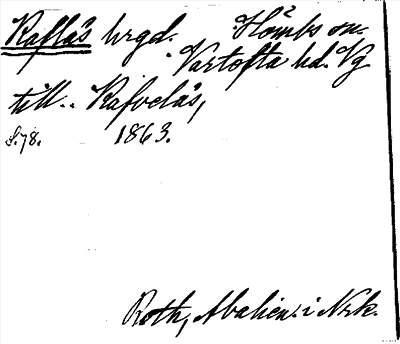 Raflås hrgd. Hömbs sn.
Vartofta hd. Vg
till.. Rafvelås,
S.78. 1863.
Roth, Abalien. i Nrk.